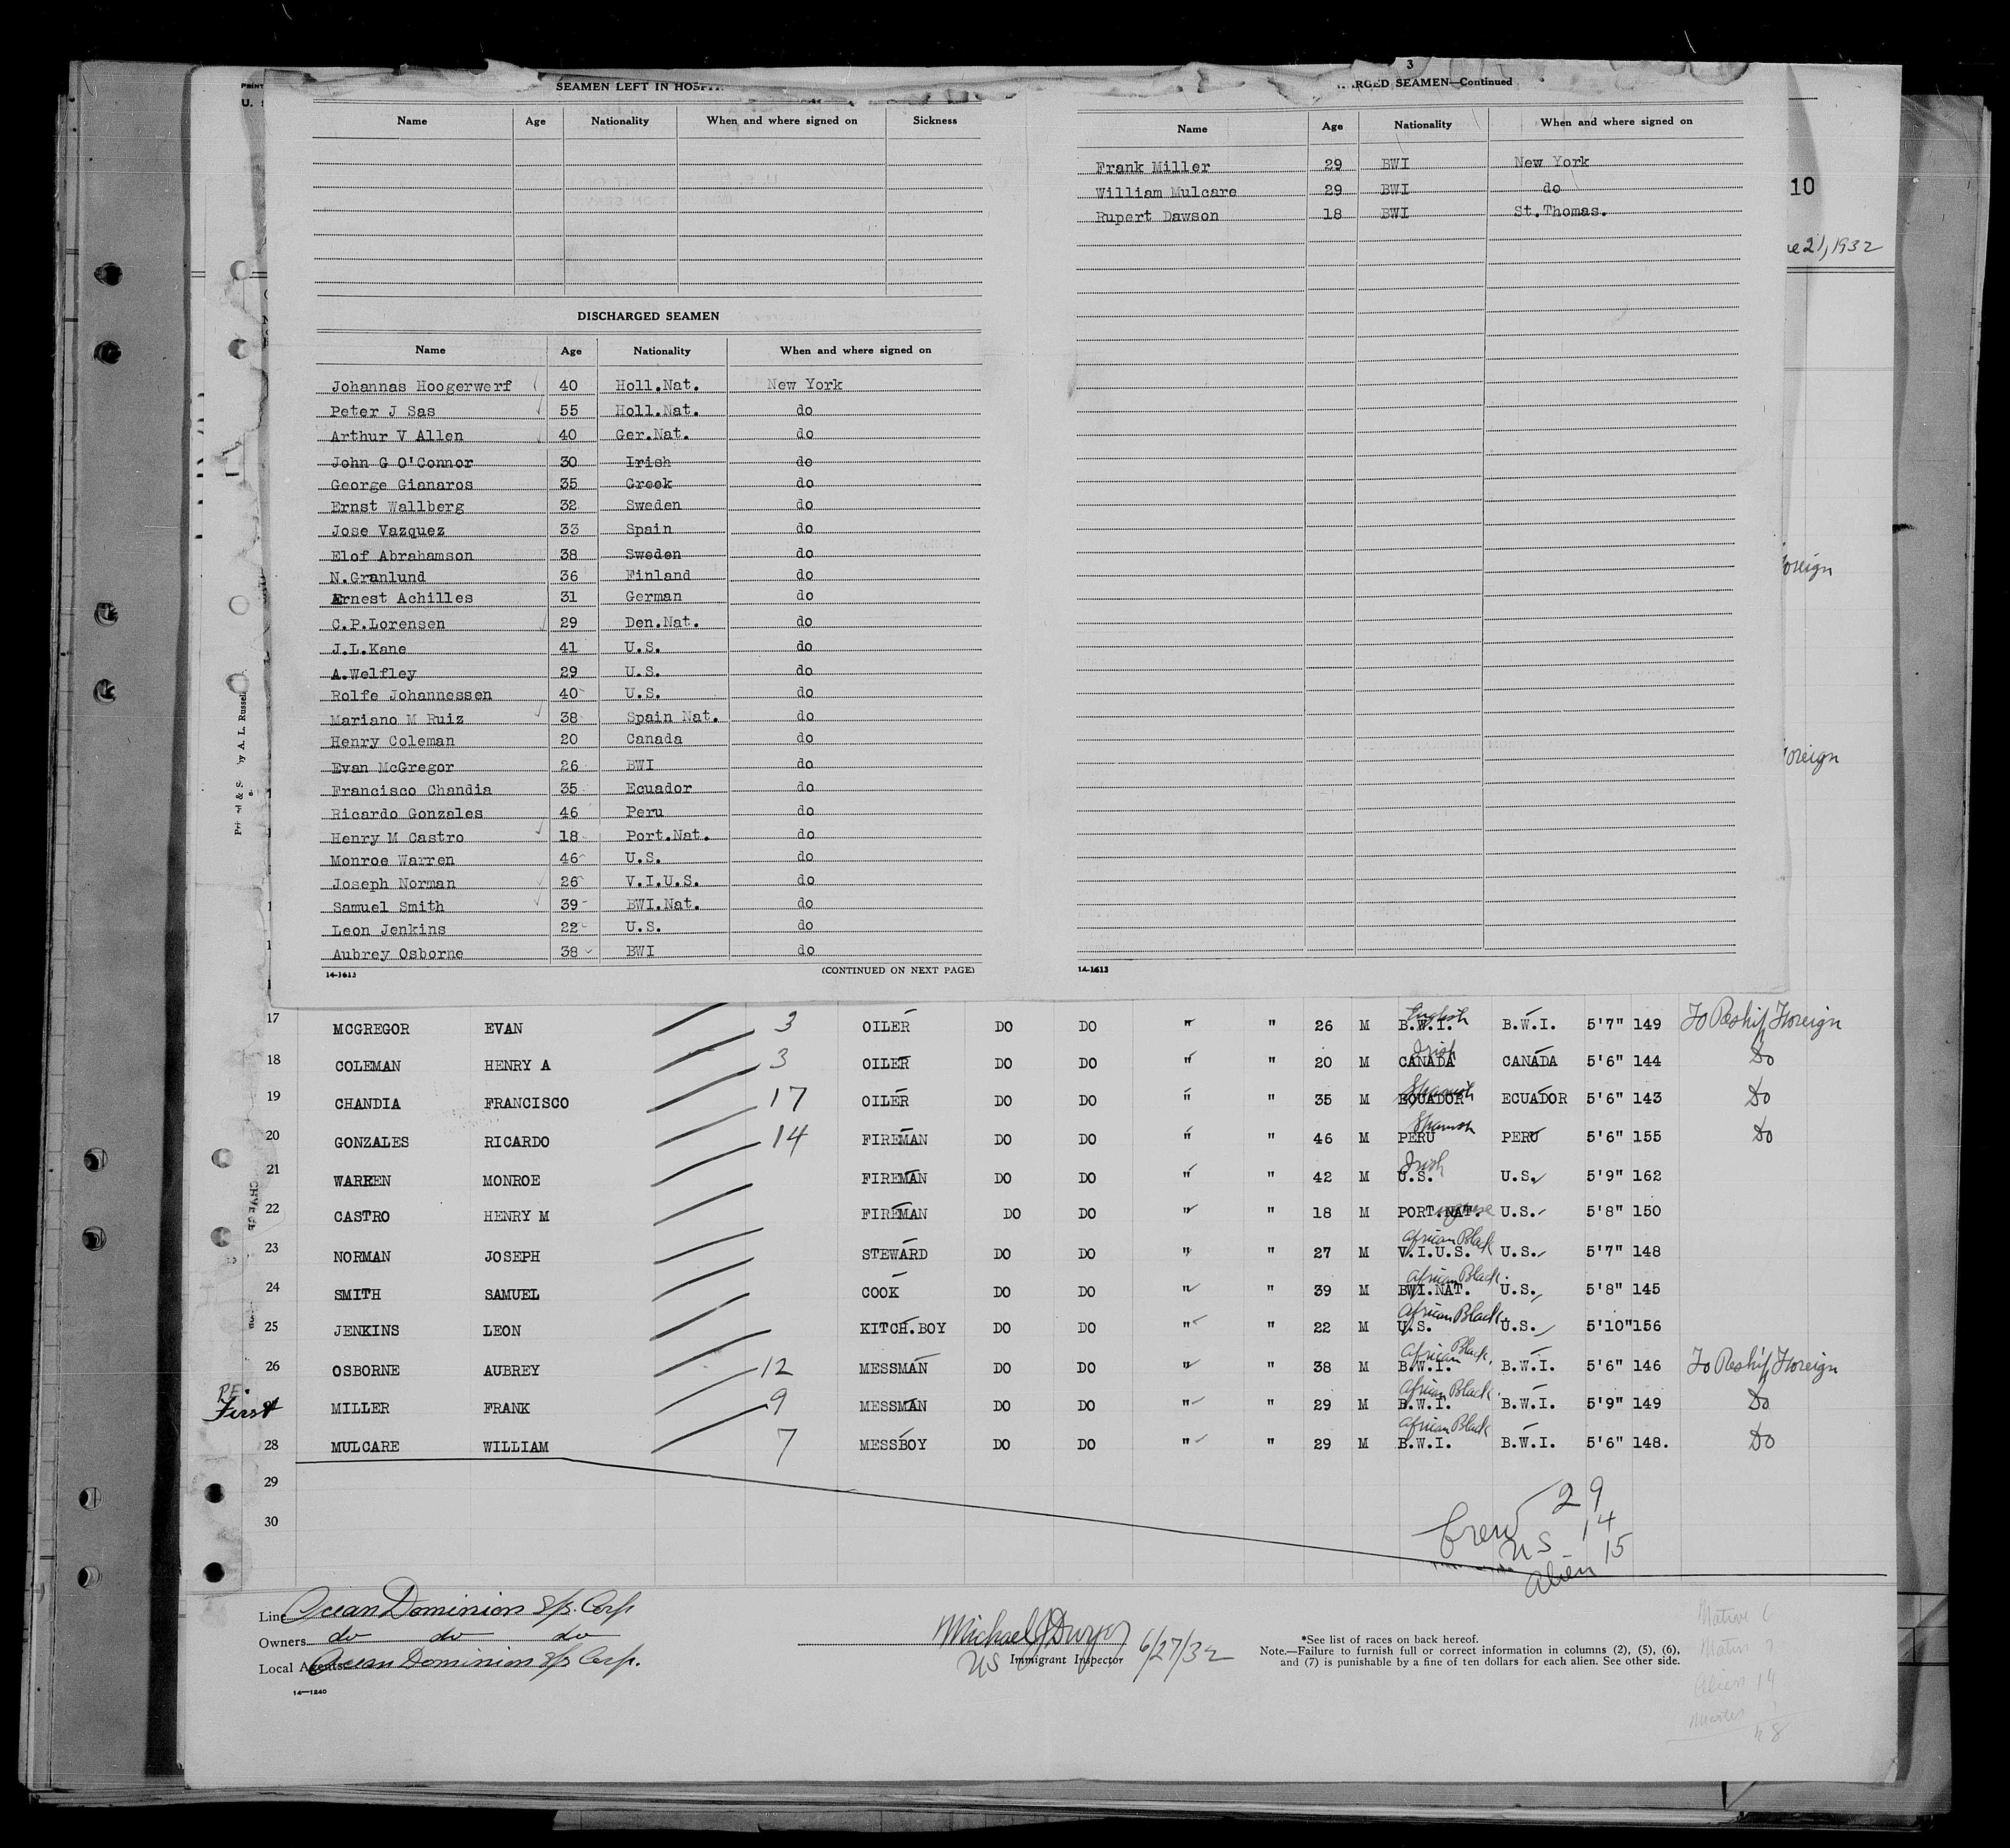 SEAMEN LEFT IN
Name Age Nationality When and where signed on Sickness
DISCHARGED SEAMEN
Name Age Nationality When and where signed on
Johannas Hoogerwerf 40 Holl.Nat. New York
Peter J Sas 55 Holl.Nat. do
Arthur V Allen 40 Ger.Nat. do
John G O'Connor 30 Irish do
George Gianaros 35 Greek do
Ernst Wallberg 32 Sweden do
Jose Vazquez 33 Spain do
Elof Abrahamson 38 Sweden do
N.Granlund 36 Finland do
Ernest Achilles 31 German do
C.P.Lorensen 29 Den.Nat. do
J.L.Kane 41 U.S. do
A.Welfley 29 U.S. do
Rolfe Johannessen 40 U.S. do
Mariano M Ruiz 38 Spain Nat. do
Henry Coleman 20 Canada do
Evan McGregor 26 BWI do
Francisco Chandia 35 Ecuador do
Ricardo Gonzales 46 Peru do
Henry M Castro 18 Port.Nat. do
Monroe Warren 46 U.S. do
Joseph Norman 26 V.I.U.S. do
Samuel Smith 39 BWI.Nat. do
Leon Jenkins 22 U.S. do
Aubrey Osborne 38 BWI do
14-1613 (CONTINUED ON NEXT PAGE)
3
SEAMEN—Continued
Name Age Nationality When and where signed on
Frank Miller 29 BWI New York
William Mulcare 29 BWI do
Rupert Dawson 18 BWI St.Thomas.
14-1613
10
21, 1932
oreign
oreign
by A. L. Russell
17 MCGREGOR EVAN 3 OILER DO DO " " 26 M English B.W.I. B.W.I. 5'7" 149 To Reship Foreign
18 COLEMAN HENRY A 3 OILER DO DO " " 20 M Irish CANADA CANADA 5'6" 144 Do
19 CHANDIA FRANCISCO 17 OILER DO DO " " 35 M Spanish ECUADOR ECUADOR 5'6" 143 Do
20 GONZALES RICARDO 14 FIREMAN DO DO " " 46 M Spanish PERU PERU 5'6" 155 Do
21 WARREN MONROE FIREMAN DO DO " " 42 M Irish U.S. U.S. 5'9" 162
22 CASTRO HENRY M FIREMAN DO DO " " 18 M PORT.NAT. U.S. 5'8" 150
23 NORMAN JOSEPH STEWARD DO DO " " 27 M African Black V.I.U.S. U.S. 5'7" 148
24 SMITH SAMUEL COOK DO DO " " 39 M African Black. BWI.NAT. U.S. 5'8" 145
25 JENKINS LEON KITCH.BOY DO DO " " 22 M African Black. U.S. U.S. 5'10" 156
26 OSBORNE AUBREY 12 MESSMAN DO DO " " 38 M African Black. B.W.I. B.W.I. 5'6" 146 To Reship Foreign
First MILLER FRANK 9 MESSMAN DO DO " " 29 M African Black. B.W.I. B.W.I. 5'9" 149 Do
28 MULCARE WILLIAM 7 MESSBOY DO DO " " 29 M African Black B.W.I. B.W.I. 5'6" 148. Do
29
30
Crew 29
US 14
Alien 15
Line Ocean Dominion S/S. Corp
Owners do do do
Local Agents Ocean Dominion S/S Corp.
14—1240
Michael J Dwyer 6/27/32
US Immigrant Inspector
*See list of races on back hereof.
Note.—Failure to furnish full or correct information in columns (2), (5), (6),
and (7) is punishable by a fine of ten dollars for each alien. See other side.
Native 6
Alien 14
Master 1